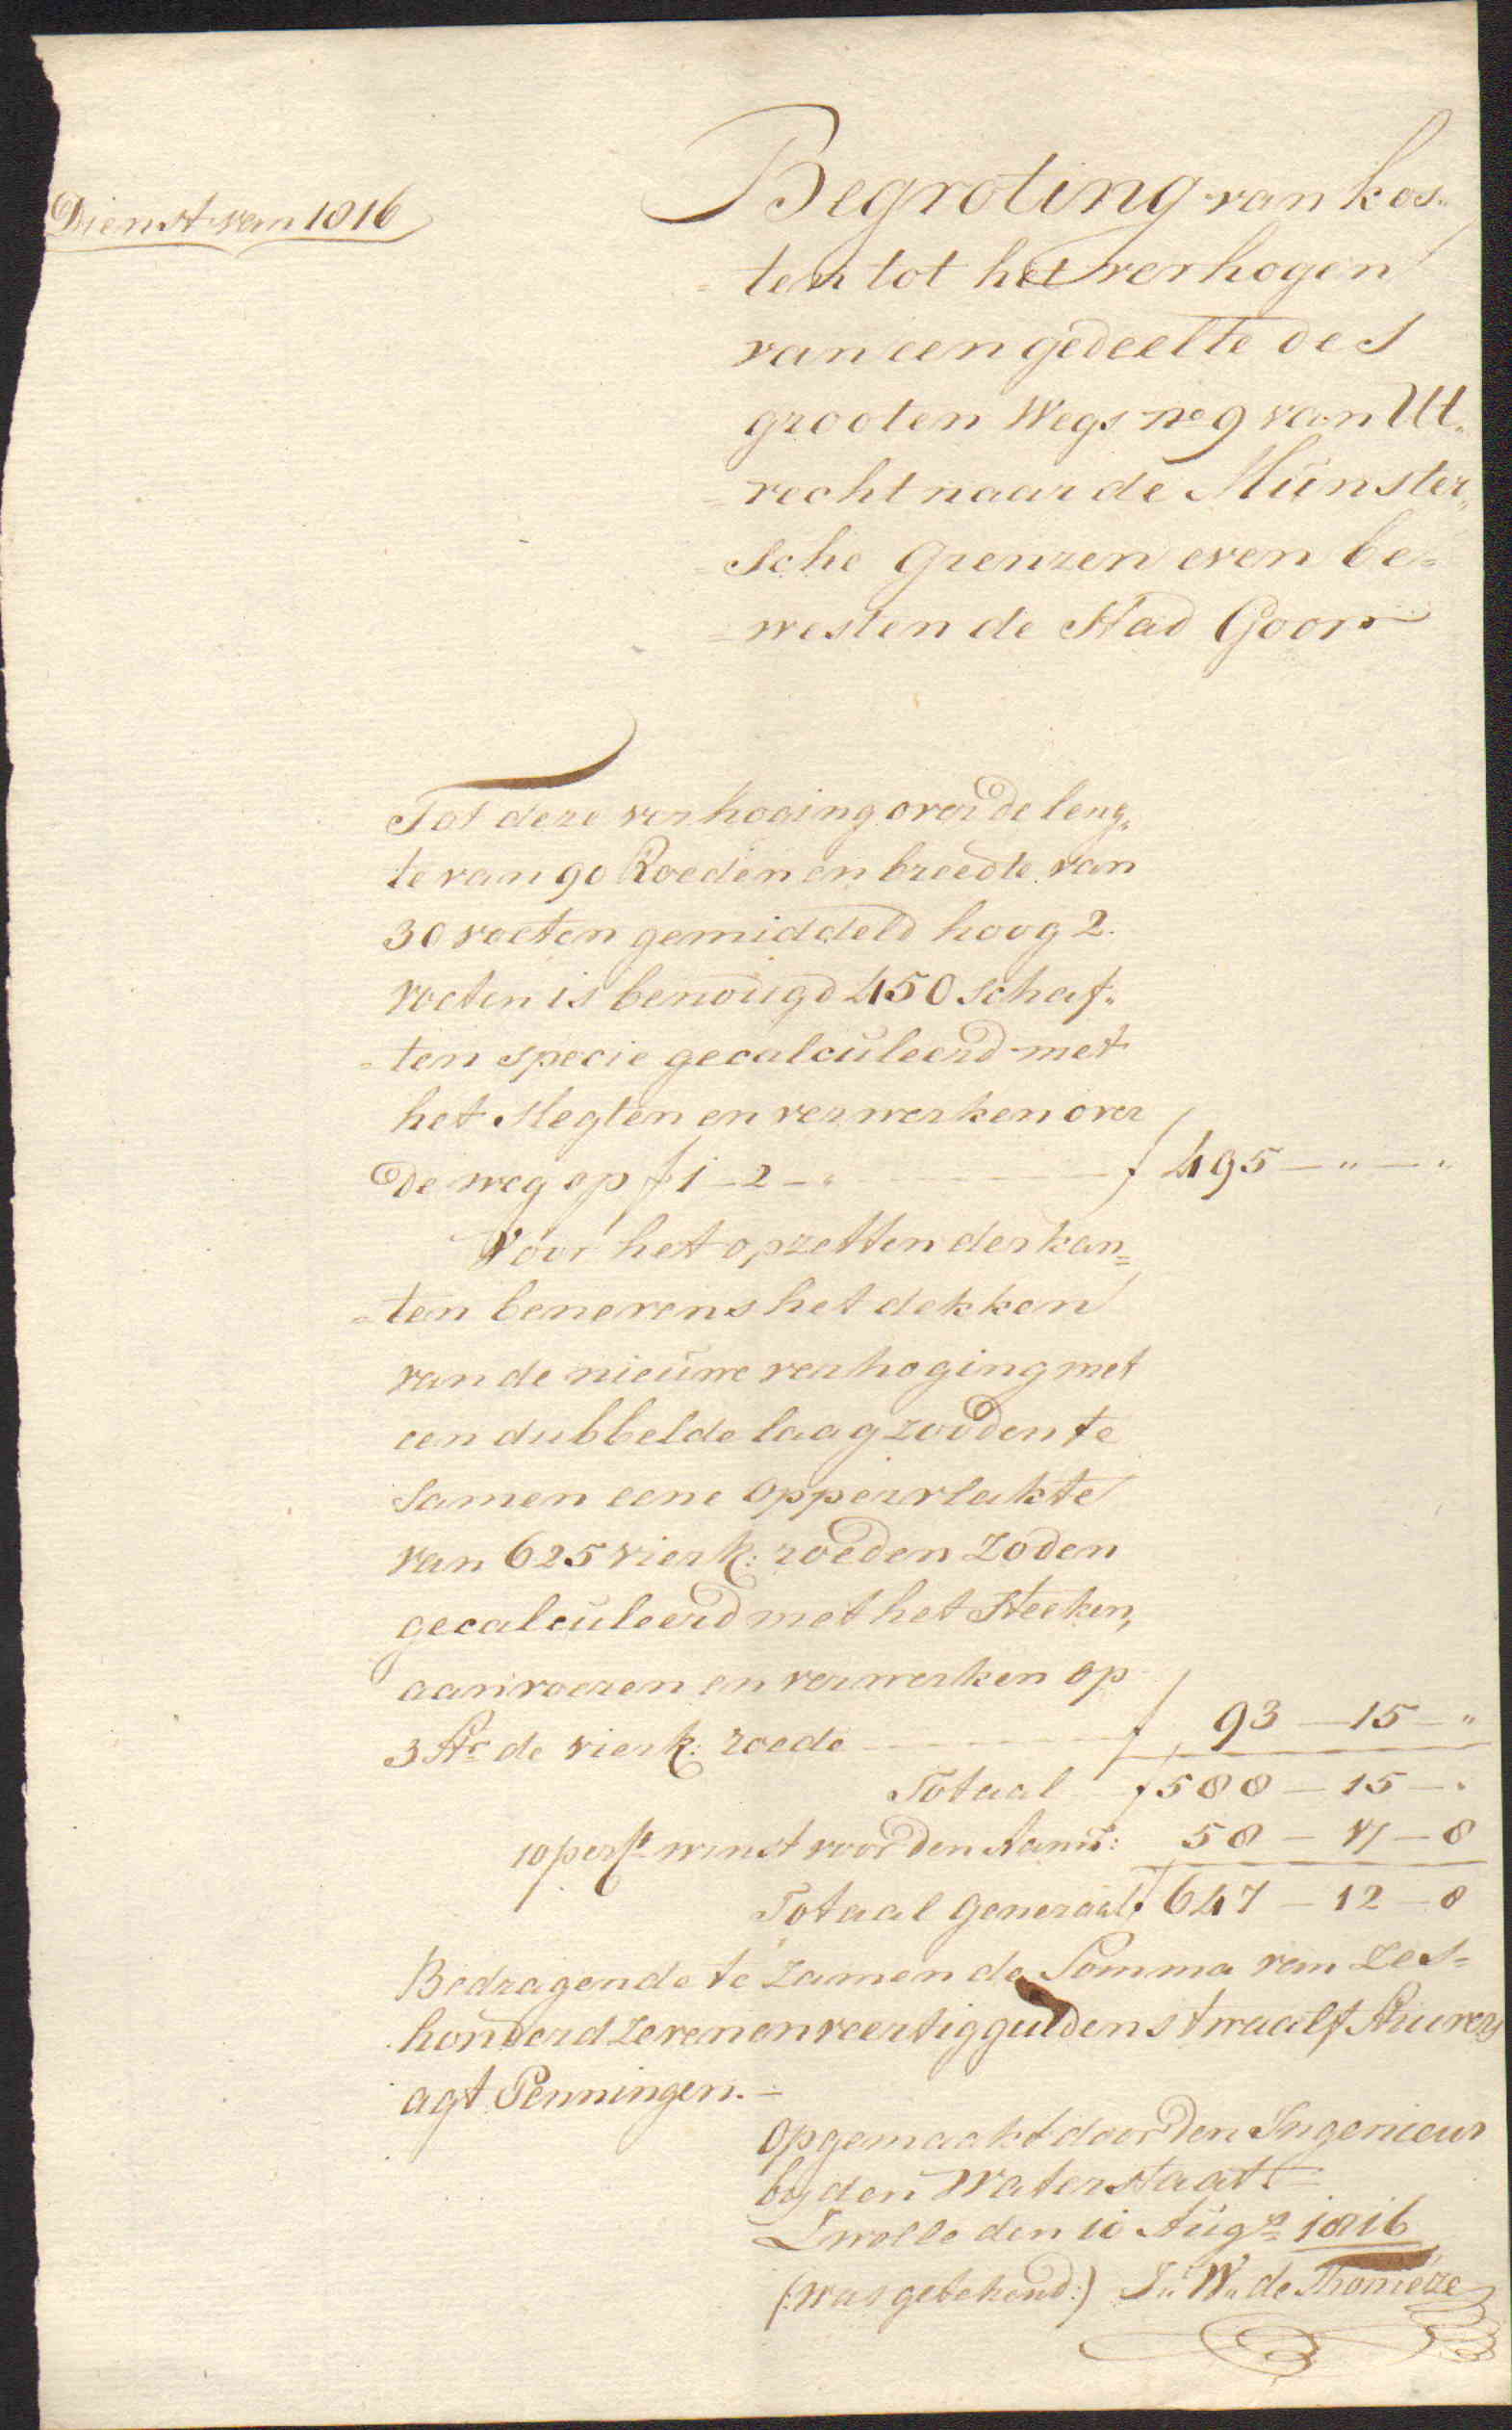 Dienst van 1816
Begroting van kos„
„ten tot het verhogen
van een gedeelte des
grooten Wegs no 9 van Ut„
„recht naar de Munster„
„sche Grenzen even be„
„westen de Stad Goor
Tot deze verhoging over de leng„
te van 90 Roeden en breedte van
30 voeten gemiddeld hoog 2.
voeten is benodigd 450 schaf„
„ten specie gecalculeerd met
het slegten en verwerken over
de weg op ƒ 1 - 2 - „ ƒ 495 - „ - „
Voor het opzetten der kan„
„ten benevens het dekken
van de nieuwe verhoging met
een dubbelde laag zooden te
samen eene oppervlakte
van 625 vierk: roeden Zoden
gecalculeerd met het Steeken,
aanvoeren en verwerken op
3 Str de vierk: roede ƒ 93 - 15 - „
Totaal ƒ 588 - 15 - „
10 perct winst voor den Aann: 58 - 17 - 8
Totaal Generaal ƒ 647 - 12 - 8
Bedragende te zamen de Somma van Zes„
honderd zevenenveertig guldens twaalf Stuivers
agt Penningen. -
Opgemaakt door den Ingenieur
bij den Waterstaat
Zwolle den 10 Augs 1816
(:was getekend:) J: W: de Thomèze